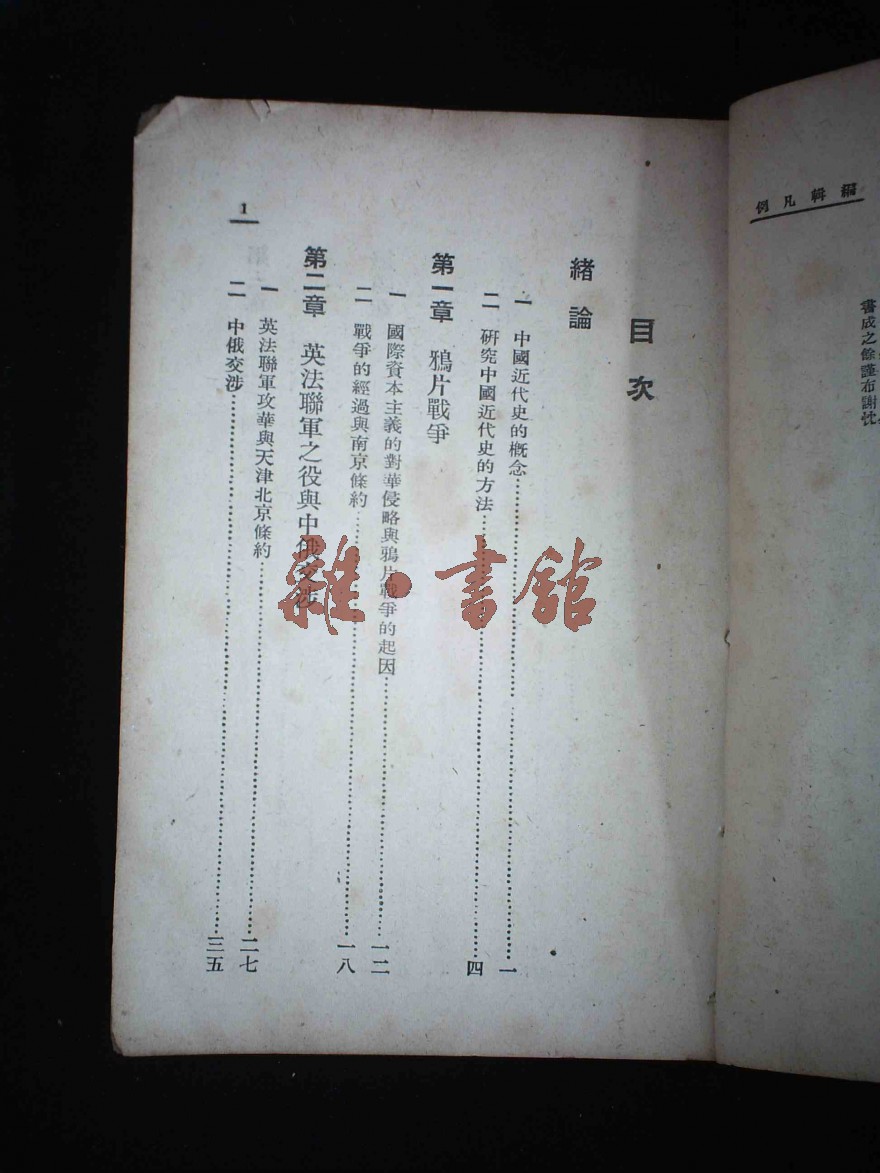 編輯凡例
書成之餘謹布謝忱
目次
緒論
一 中國近代史的概念……一
二 研究中國近代史的方法……四
第一章 鴉片戰爭
一 國際資本主義的對華侵略與鴉片戰爭的起因……一二
二 戰爭的經過與南京條約……一八
第二章 英法聯軍之役與中俄交涉
一 英法聯軍攻華與天津北京條約……二七
二 中俄交涉……三五
1
雜·書館